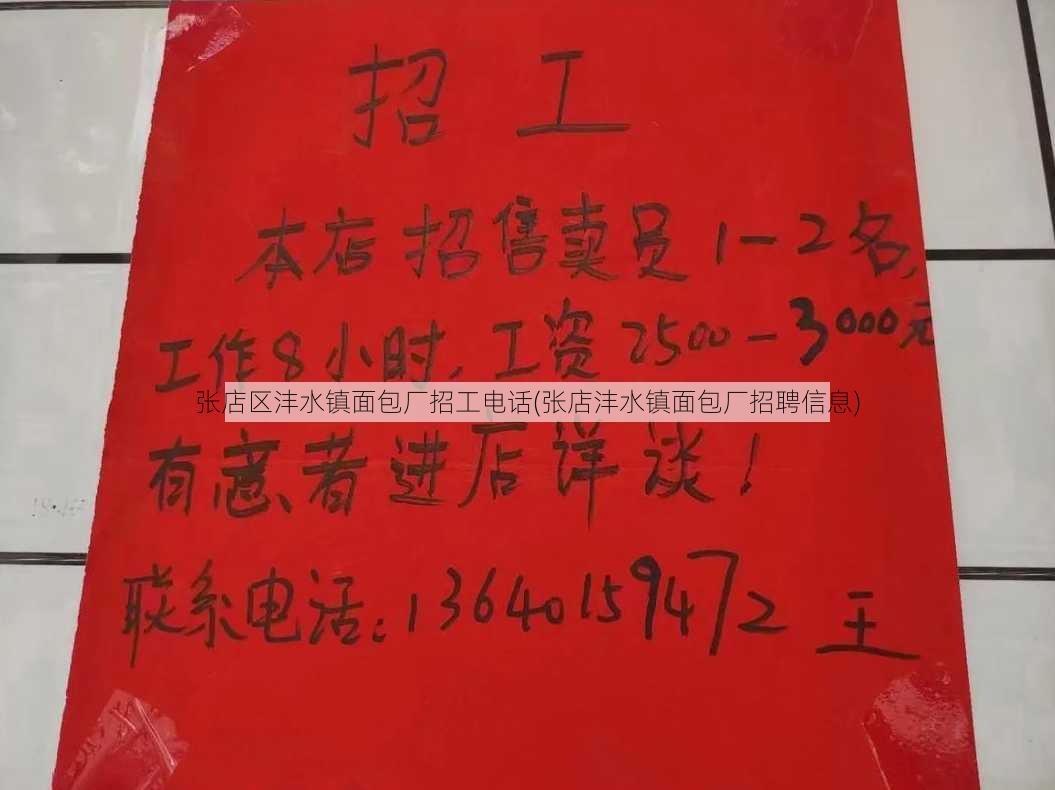 招工
本店招售卖员1-2名,
工作8小时,工资2500-3000元
张店区沣水镇面包厂招工电话(张店沣水镇面包厂招聘信息)
有意者进店详谈!
联系电话:13640159472 王